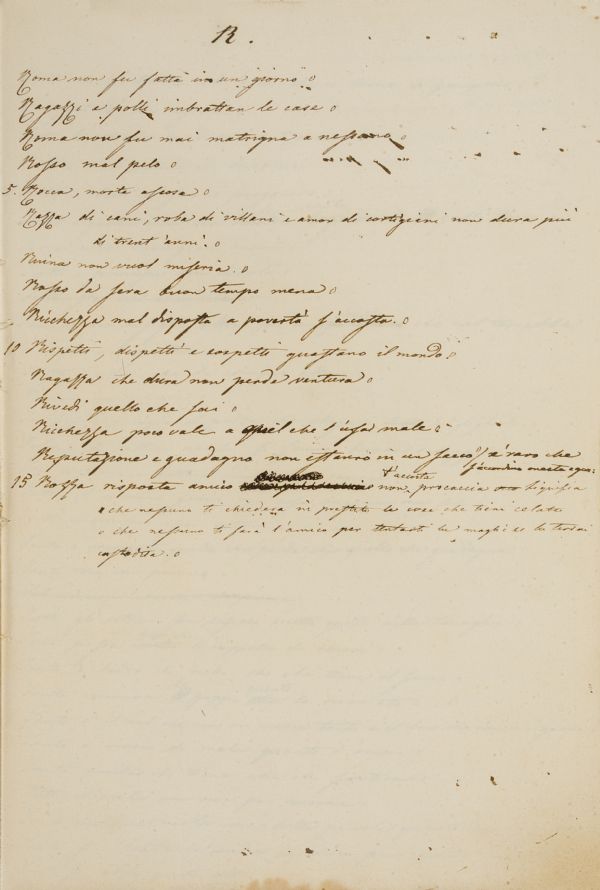 R.
Roma non fu fatta in un giorno
Ragazzi e polli imbrattan le case
Roma non fu mai matrigna a nessuno
Rosso mal pelo
5. Rocca, morte assosa
Razza di cani, roba di villani e amor di cortigiani non dura più
di trent'anni.
Ruina non vuol miseria.
Rosso da sera buon tempo mena
Ricchezza mal disposta a povertà s'accosta.
10 Rispetti, dispetti e sospetti guastano il mondo
Ragazza che dura non perde ventura
Rivedi quello che fai
Ricchezza poco vale a quel che l'usa male
Reputazione e guadagno non istanno in un sacco / è raro che
s'accordino onestà e
15 Rozza risposta amico non procaccia significa
t'accosta
che nessuno ti chiederà in prestito le cose che tieni celate
o che nessuno ti sarà l'amico per tentarti la moglie se la terrai
custodita.